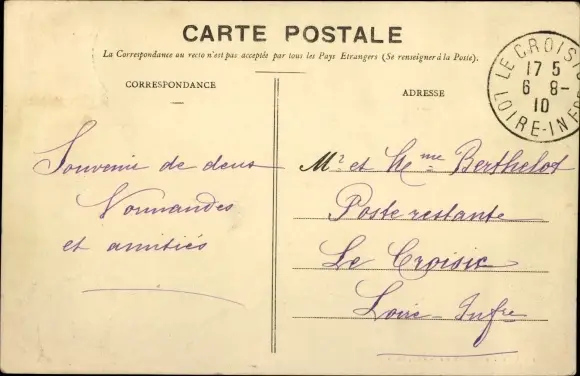 CARTE POSTALE
La Correspondance au recto n'est pas acceptée par tous les Pays Etrangers (Se renseigner à la Poste).
CORRESPONDANCE
ADRESSE
LE CROISIC
17 5
6 8-
10
LOIRE-INFRE
Souvenir de deux
Normandes
et amitiés
Mr et Mme Berthelot
Poste restante
Le Croisic
Loire Infre